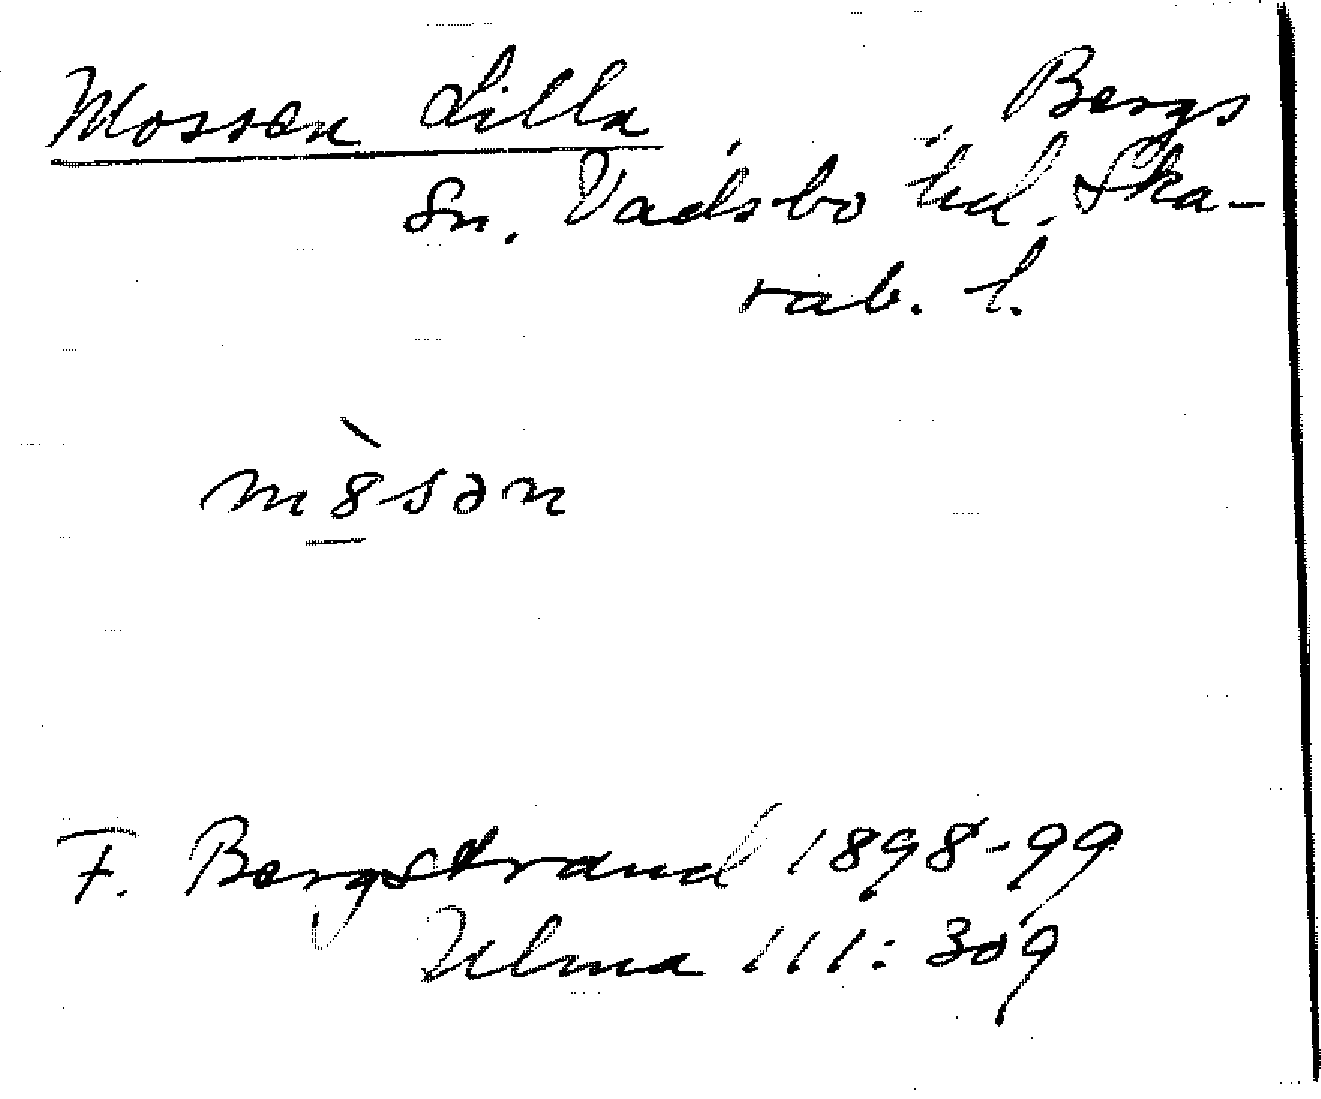 Mossen Lilla Bergs
sn. Vadsbo hd. Ska-
rab. l.
m8̀sən
F. Bergstrand 1898-99
Ulma 111:309